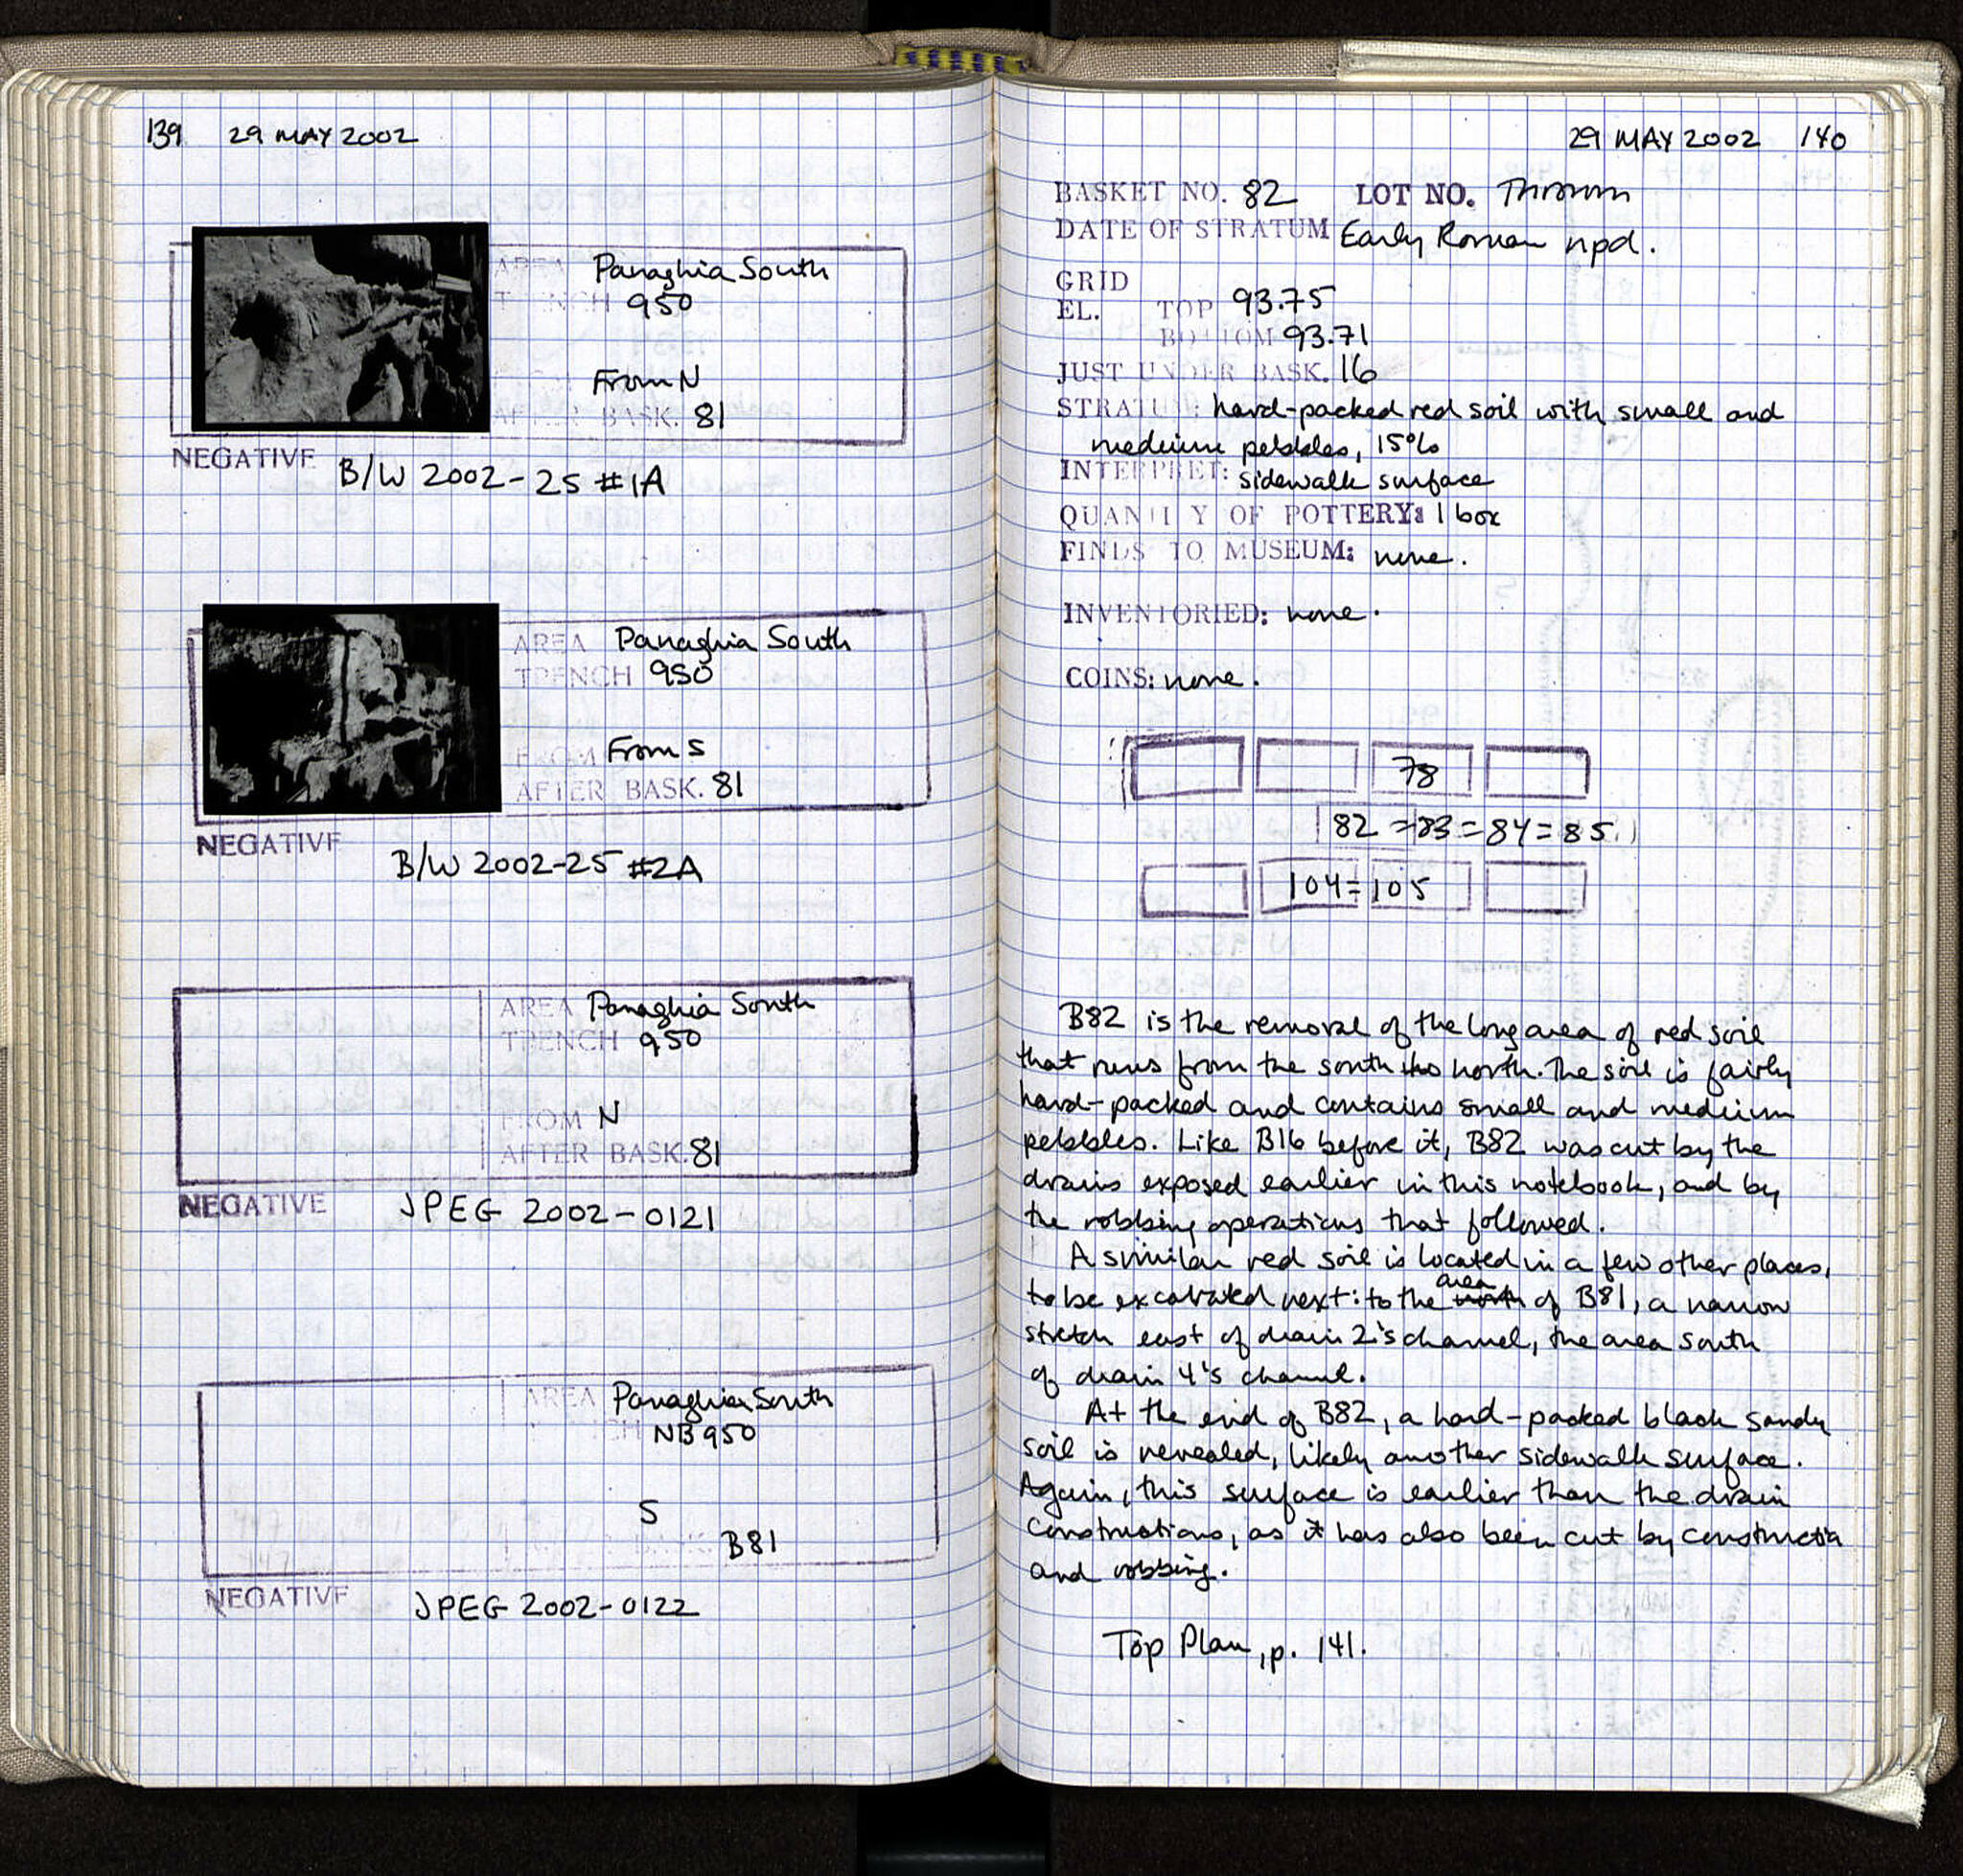 139 29 MAY 2002
AREA Panaghia South
TRENCH 950
FROM From N
AFTER BASK. 81
NEGATIVE B/W 2002-25 #1A
AREA Panaghia South
TRENCH 950
FROM From S
AFTER BASK. 81
NEGATIVE
B/W 2002-25 #2A
AREA Panaghia South
TRENCH 950
FROM N
AFTER BASK. 81
NEGATIVE JPEG 2002-0121
AREA Panaghia South
TRENCH NB 950
S
BASK. B81
NEGATIVE JPEG 2002-0122
29 MAY 2002 140
BASKET NO. 82 LOT NO. Thrown
DATE OF STRATUM Early Roman npd.
GRID
EL. TOP 93.75
BOTTOM 93.71
JUST UNDER BASK. 16
STRATUM: hard-packed red soil with small and
medium pebbles, 15%
INTERPRET: sidewalk surface
QUANTITY OF POTTERY: 1 box
FINDS TO MUSEUM: none.
INVENTORIED: none.
COINS: none.
78
82 = 83 = 84 = 85
104 = 105
B82 is the removal of the long area of red soil
that runs from the south to north. The soil is fairly
hard-packed and contains small and medium
pebbles. Like B16 before it, B82 was cut by the
drains exposed earlier in this notebook, and by
the robbing operations that followed.
A similar red soil is located in a few other places,
to be excavated next: to the north area of B81, a narrow
stretch east of drain 2's channel, the area south
of drain 4's channel.
At the end of B82, a hard-packed black sandy
soil is revealed, likely another sidewalk surface.
Again, this surface is earlier than the drain
constructions, as it has also been cut by construction
and robbing.
Top Plan, p. 141.